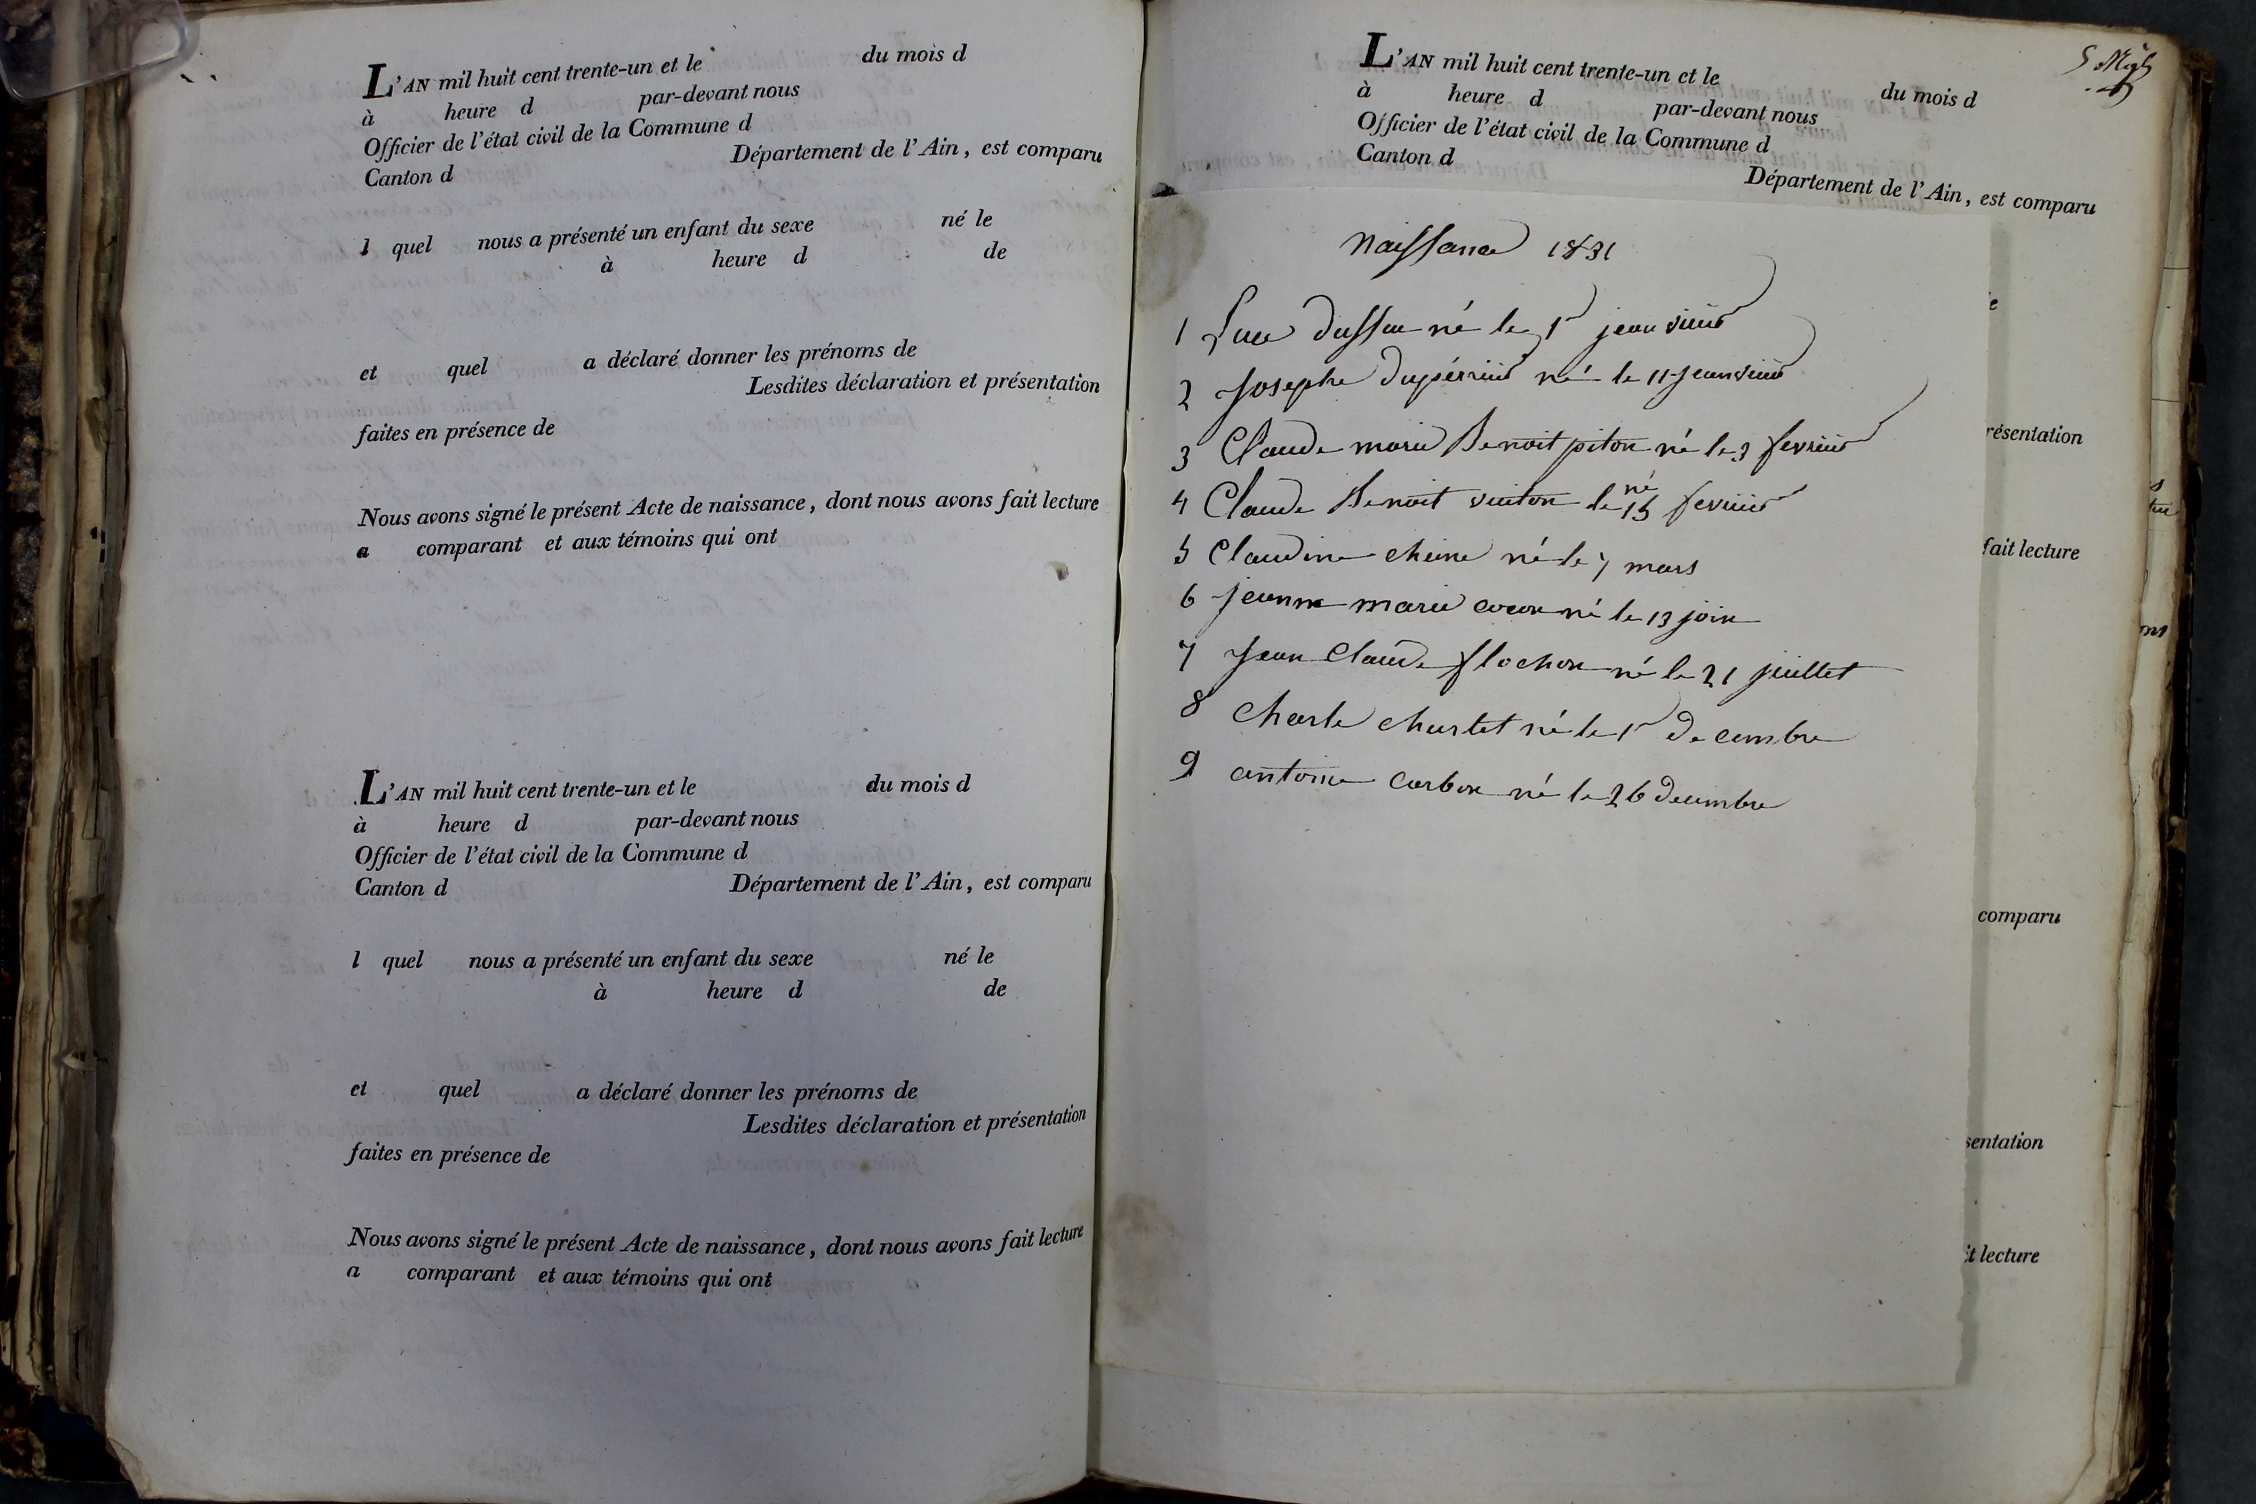 L'AN mil huit cent trente-un et le du mois d
à heure d par-devant nous
Officier de l'état civil de la Commune d
Canton d Département de l'Ain, est comparu
l quel nous a présenté un enfant du sexe né le
à heure d de
et quel a déclaré donner les prénoms de
Lesdites déclaration et présentation
faites en présence de
Nous avons signé le présent Acte de naissance, dont nous avons fait lecture
a comparant et aux témoins qui ont
L'AN mil huit cent trente-un et le du mois d
à heure d par-devant nous
Officier de l'état civil de la Commune d
Canton d Département de l'Ain, est comparu
l quel nous a présenté un enfant du sexe né le
à heure d de
et quel a déclaré donner les prénoms de
Lesdites déclaration et présentation
faites en présence de
Nous avons signé le présent Acte de naissance, dont nous avons fait lecture
a comparant et aux témoins qui ont
L'AN mil huit cent trente-un et le du mois d
à heure d par-devant nous
Officier de l'état civil de la Commune d
Canton d Département de l'Ain, est comparu
naissance 1831
1 né le 1r jeanvier
2 Josephe dupérrier né le 11 jeanvier
3 Claude marie Benoit piton né le 3 fevrier
4 Claude Benoit vuiton né le 15 fevrier
5 Claudine chêne né le 7 mars
6 jeanne marie né le 13 join
7 jean Claude flochon né le 21 juillet
8 charle charlet né le 1r decembre
9 antoine carbon né le 26 decembre
résentation
fait lecture
comparu
sentation
it lecture